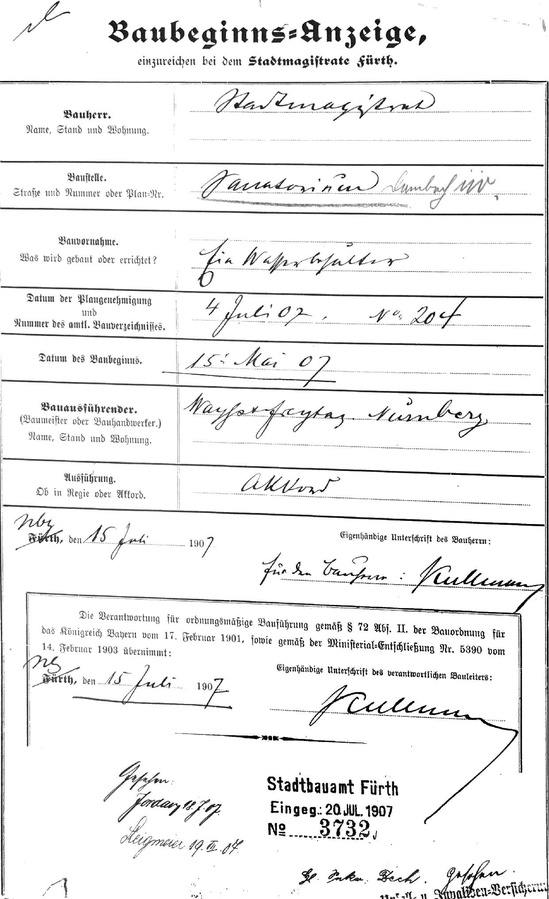 Baubeginns-Anzeige,
einzureichen bei dem Stadtmagistrate Fürth.
Bauherr.
Name, Stand und Wohnung.
Stadtmagistrat
Baustelle.
Straße und Nummer oder Plan-Nr.
Sanatorium
Bauvornahme.
Was wird gebaut oder errichtet?
Ein Wasserbehälter
Datum der Plangenehmigung
und
Nummer des amtl. Bauverzeichnisses.
4 Juli 07. No. 204
Datum des Baubeginns.
15. Mai 07
Bauausführender.
(Baumeister oder Bauhandwerker.)
Name, Stand und Wohnung.
Wayss & Freytag Nürnberg
Ausführung.
Ob in Regie oder Akkord.
Akkord
Nbg
Fürth, den 15 Juli 1907
Eigenhändige Unterschrift des Bauherrn:
für den Bauherrn: Kullmann
Die Verantwortung für ordnungsmäßige Bauführung gemäß § 72 Abs. II. der Bauordnung für
das Königreich Bayern vom 17. Februar 1901, sowie gemäß der Ministerial-Entschließung Nr. 5390 vom
14. Februar 1903 übernimmt:
Eigenhändige Unterschrift des verantwortlichen Bauleiters:
Fürth, den 15 Juli 1907
Kullmann
Gesehen:
18.7.07.
Stadtbauamt Fürth
Eingeg.: 20. JUL. 1907
No 3732
19
Gesehen.
Invaliden-Versicherung